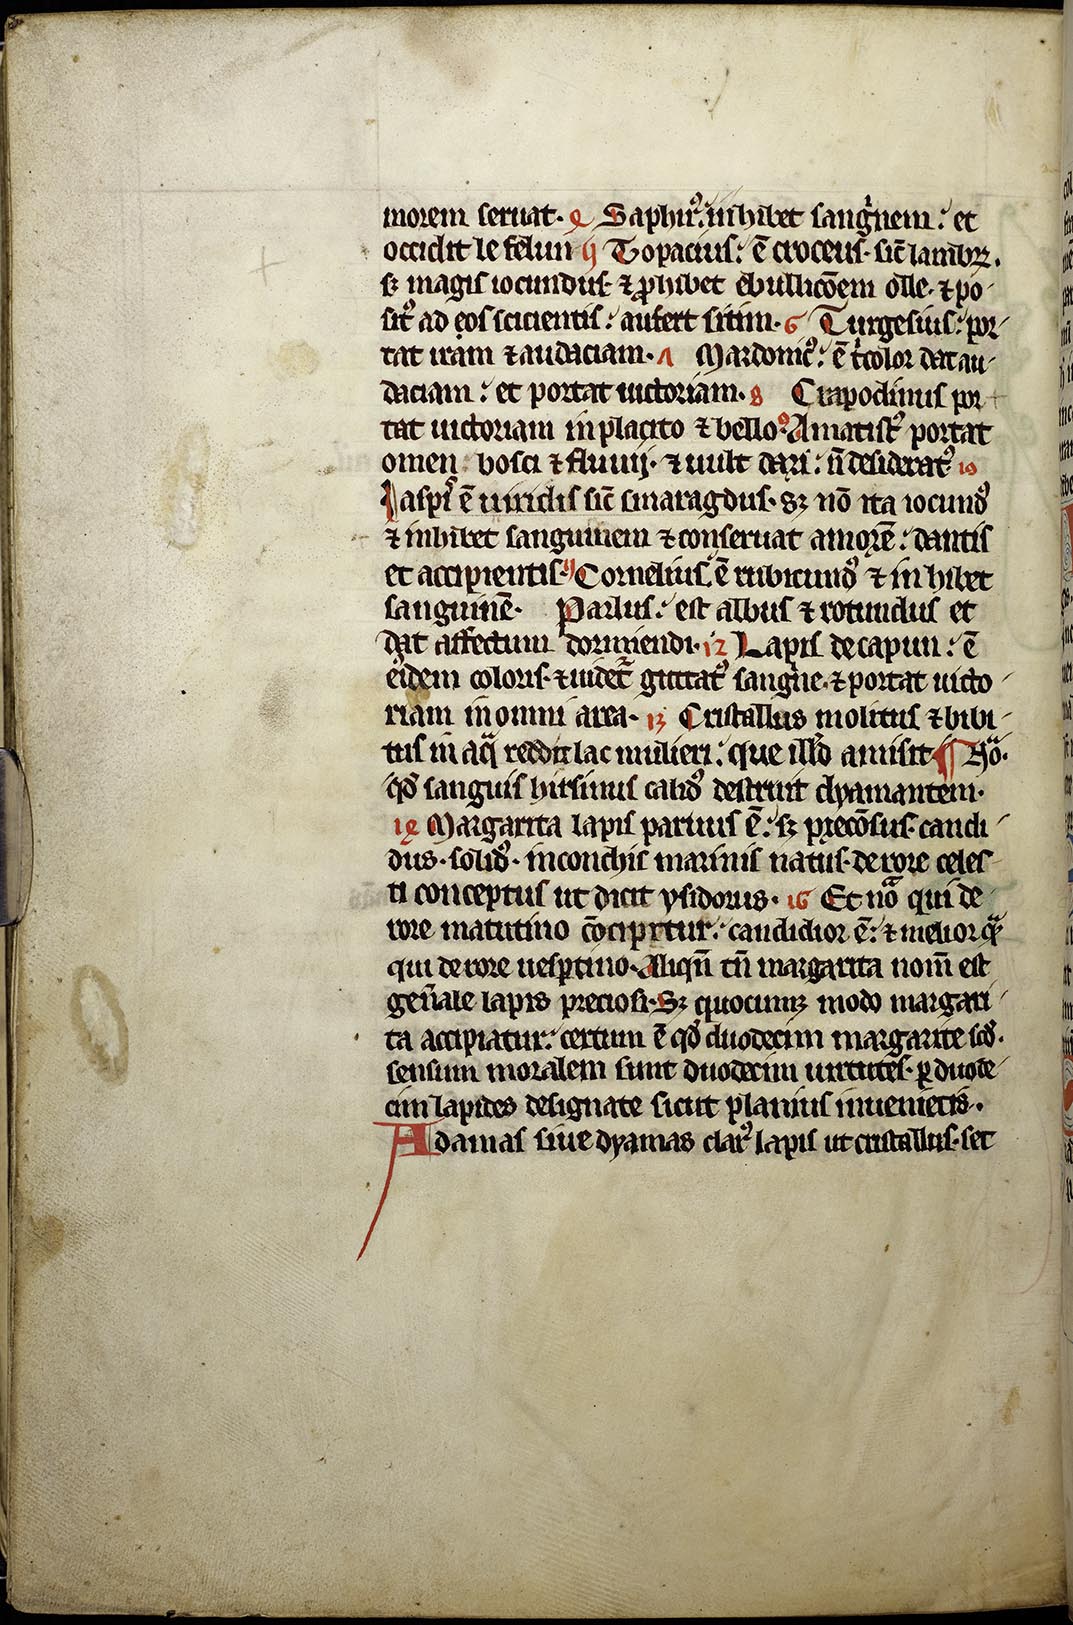 morem seruat. 4 Saphirꝰ: inhibet sangͥnem: et
occidit le felun 5 Topacius: ē croceus. sic̄ lambꝝ.
sꝫ magis iocundus. ⁊ ꝓhibet ebullicōem olle. ⁊ po
sitꝰ ad eos scicientis: aufert sitim. 6 Turgesius: por
tat iram ⁊ audaciam. ʌ Mardonicꝰ: ē tͥcolor dat au
daciam: et portat uictoriam. 8 Crapodinus por
tat uictoriam in placito ⁊ bello. 9 Amatistꝰ portat
omen bosci ⁊ fluuij. ⁊ uult dari: ñ desideratꝰ 10
Iaspiꝰ ē uiridis sic̄ smaragdus. sꝫ nō ita iocundꝰ
⁊ inhibet sanguinem ⁊ conseruat amorē: dantis
et accipientis. 11 Cornelius: ē rubicundꝰ ⁊ inhibet
sanguinē. Parlus: est albus ⁊ rotundus et
dat affectum dormiendi. 12 Lapis de capun: ē
eͥdem coloris. ⁊ uidetᷣ guttatꝰ sangͥne. ⁊ portat uicto
riam in omni area. 13 Cristallus molitus ⁊ bibi
tus in aqͣ reddit lac mulieri: que illđ amisit ¶ Noͣ.
qđ sanguis hirsinus calidꝰ destruit dyamantem.
14 Margarita lapis paruus ē: sꝫ p̄ecōsus. candi
dus. solidꝰ. in conchis marinis natus. de rore celes
ti conceptus ut dicit ysidorus. 16 Et noͣ qui de
rore matutino cōcipitur: candidior ē: ⁊ melior qͣ
qui de rore uesꝑtino. Aliqn̄ tn̄ margarita nom̄ est
geñale lapis preciosi. Sꝫ quocumqꝫ modo margari
ta accipiatur: certum ē qđ duodecim margarite scđ.
sensum moralem sunt duodecim uirtutes. ꝑ duode
cim lapides designate sicut planius inuenietis.
Adamas siue dyamas clarꝰ lapis ut cristallus. set